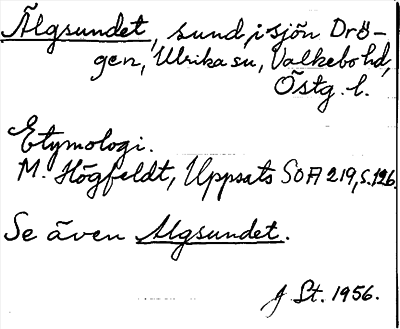 Älgsundet, sund i sjön Drö-
gen, Ulrika sn, Valkebo hd,
Östg. l.
Etymologi.
M. Högfeldt, Uppsats SOA 219, s. 126.
Se även Algsundet.
J St. 1956.